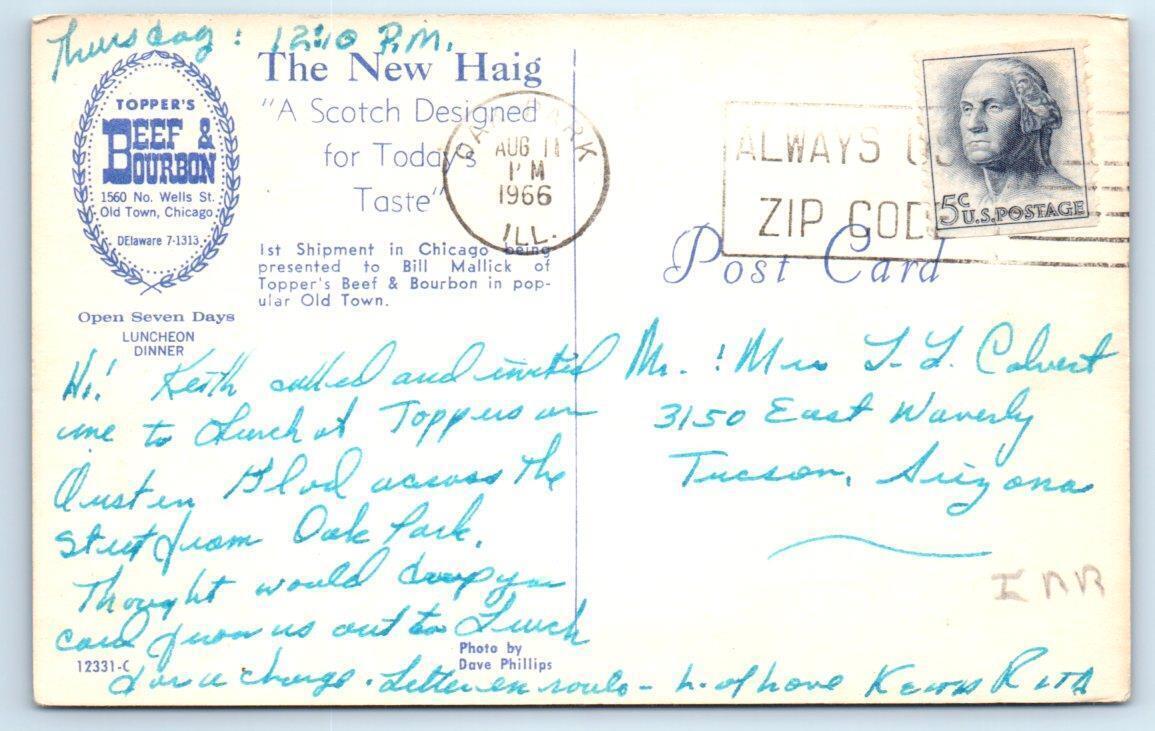 Thursday : 12:10 P.M.
TOPPER'S
BEEF &
BOURBON
1560 No. Wells St.
Old Town, Chicago
DElaware 7-1313
Open Seven Days
LUNCHEON
DINNER
The New Haig
"A Scotch Designed
for Today's
Taste"
1st Shipment in Chicago being
presented to Bill Mallick of
Topper's Beef & Bourbon in pop-
ular Old Town.
OAK PARK
AUG 11
PM
1966
ILL.
ALWAYS U
ZIP COD
5c U.S. POSTAGE
Post Card
Hi! Keith called and invited
me to Lunch at Toppers on
Austin Blvd across the
Street from Oak Park.
Thought would drop you
card from us out to Lunch
for a change. Letter en route - L. of love Keith Ruth
Photo by
Dave Phillips
12331-C
Mr. : Mrs L. L. Calvert
3150 East Waverly
Tucson, Arizona